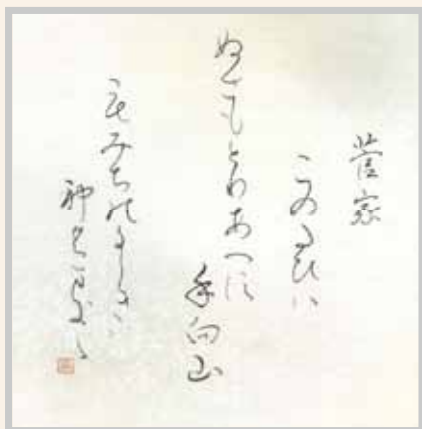 菅家
このたひは
ぬさもとりあへす
手向山
もみちのにしき
神のまに〱